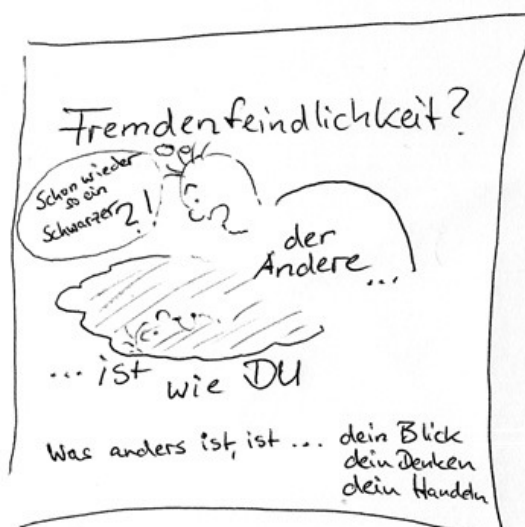 Fremdenfeindlichkeit?
Schon wieder
so ein
Schwarzer?!
der
Andere...
... ist wie DU
Was anders ist, ist ... dein Blick
dein Denken
dein Handeln